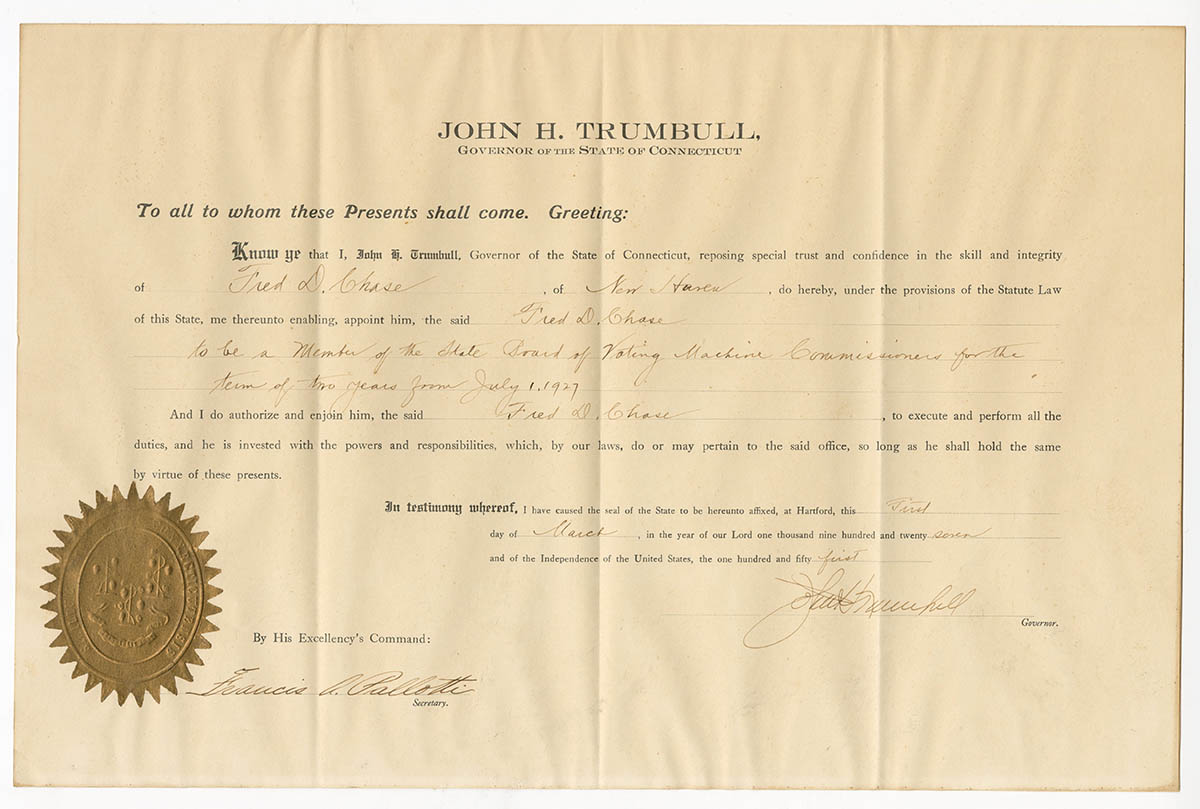 JOHN H. TRUMBULL,
GOVERNOR OF THE STATE OF CONNECTICUT
To all to whom these Presents shall come. Greeting:
Know ye that I, John H. Trumbull, Governor of the State of Connecticut, reposing special trust and confidence in the skill and integrity
of Fred D. Chase, of New Haven, do hereby, under the provisions of the Statute Law
of this State, me thereunto enabling, appoint him, the said Fred D. Chase
to be a Member of the State Board of Voting Machine Commissioners for the
term of two years from July 1, 1927
And I do authorize and enjoin him, the said Fred D. Chase, to execute and perform all the
duties, and he is invested with the powers and responsibilities, which, by our laws, do or may pertain to the said office, so long as he shall hold the same
by virtue of these presents.
In testimony whereof, I have caused the seal of the State to be hereunto affixed, at Hartford, this First
day of March, in the year of our Lord one thousand nine hundred and twenty seven
and of the Independence of the United States, the one hundred and fifty first
John H Trumbull
Governor.
By His Excellency's Command:
Francis A. Pallotti
Secretary.